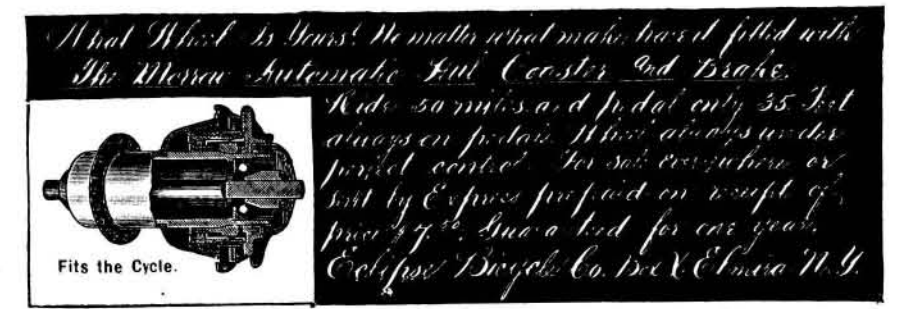 What Wheel Is Yours? No matter what make, have it fitted with
The Morrow Automatic Coaster and Brake.
Ride 50 miles and pedal only 35. Feet
always on pedals. Wheel always under
perfect control. For sale everywhere or
sent by Express prepaid on receipt of
price $7.50. Guaranteed for one year.
Eclipse Bicycle Co. Box X Elmira N.Y.
Fits the Cycle.